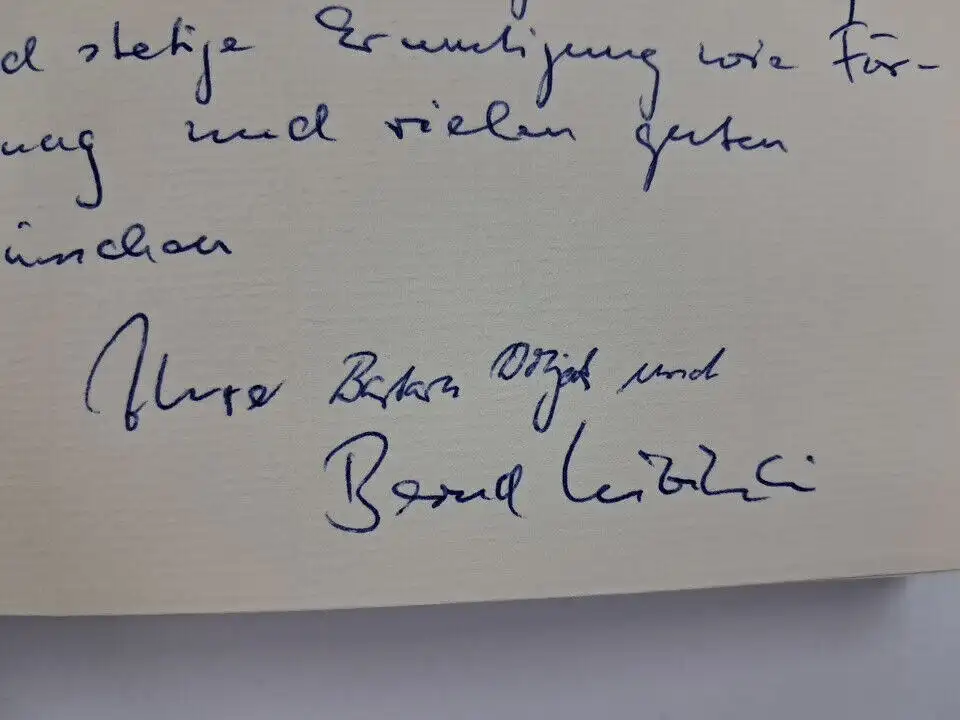 d stetige Ermutigung wie För-
ung und vielen guten
ünschen
Ihre Barbara und
Bernd